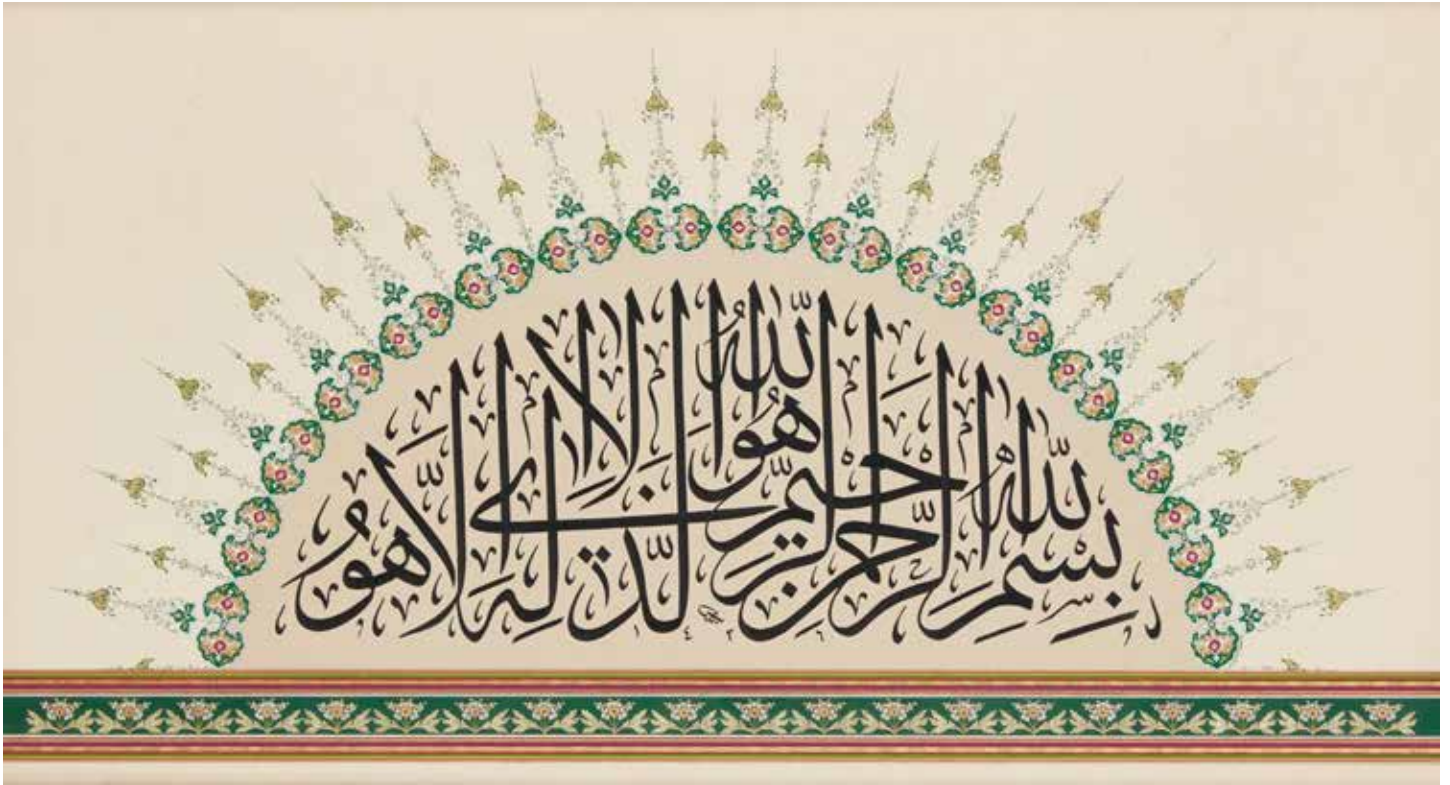 بِسْمِ اللّٰهِ الرَّحْمٰنِ الرَّحِيمِ هُوَ اللّٰهُ الَّذِي لَا إِلٰهَ إِلَّا هُوَ
١٤٢٦